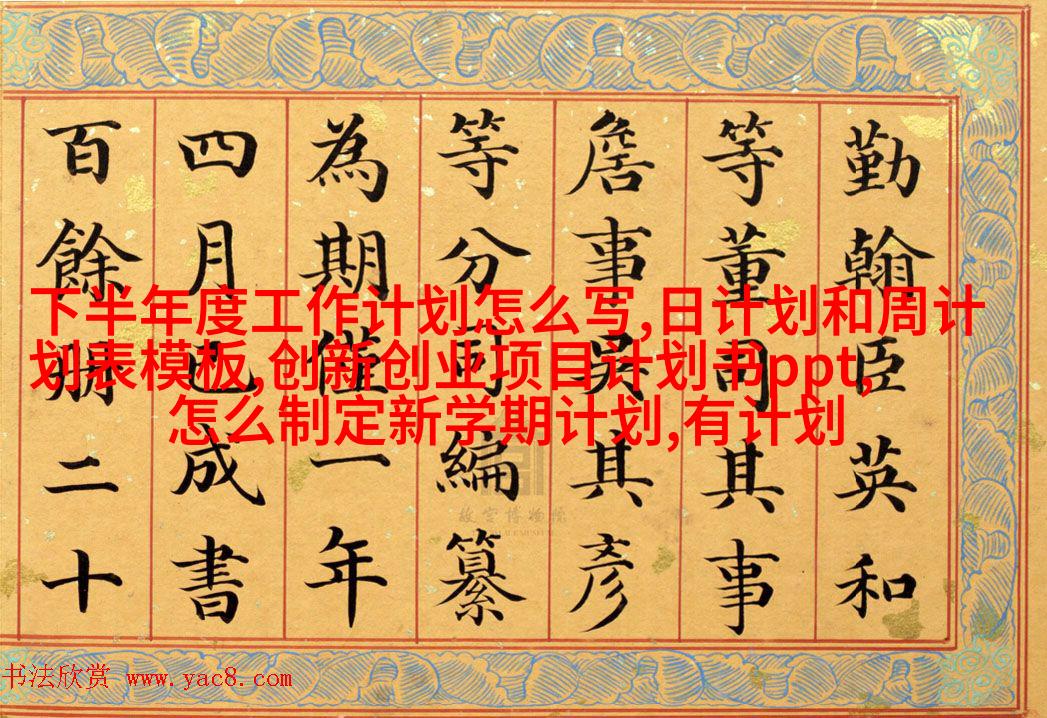 勤翰臣英和
等董司其事
詹事吳其彥
等分司編纂
為期僅一年
四月也成書
百餘冊二十
下半年度工作计划怎么写,日计划和周计
划表模板,创新创业项目计划书ppt,
怎么制定新学期计划,有计划
故宫博物院
书法欣赏 www.yac8.com